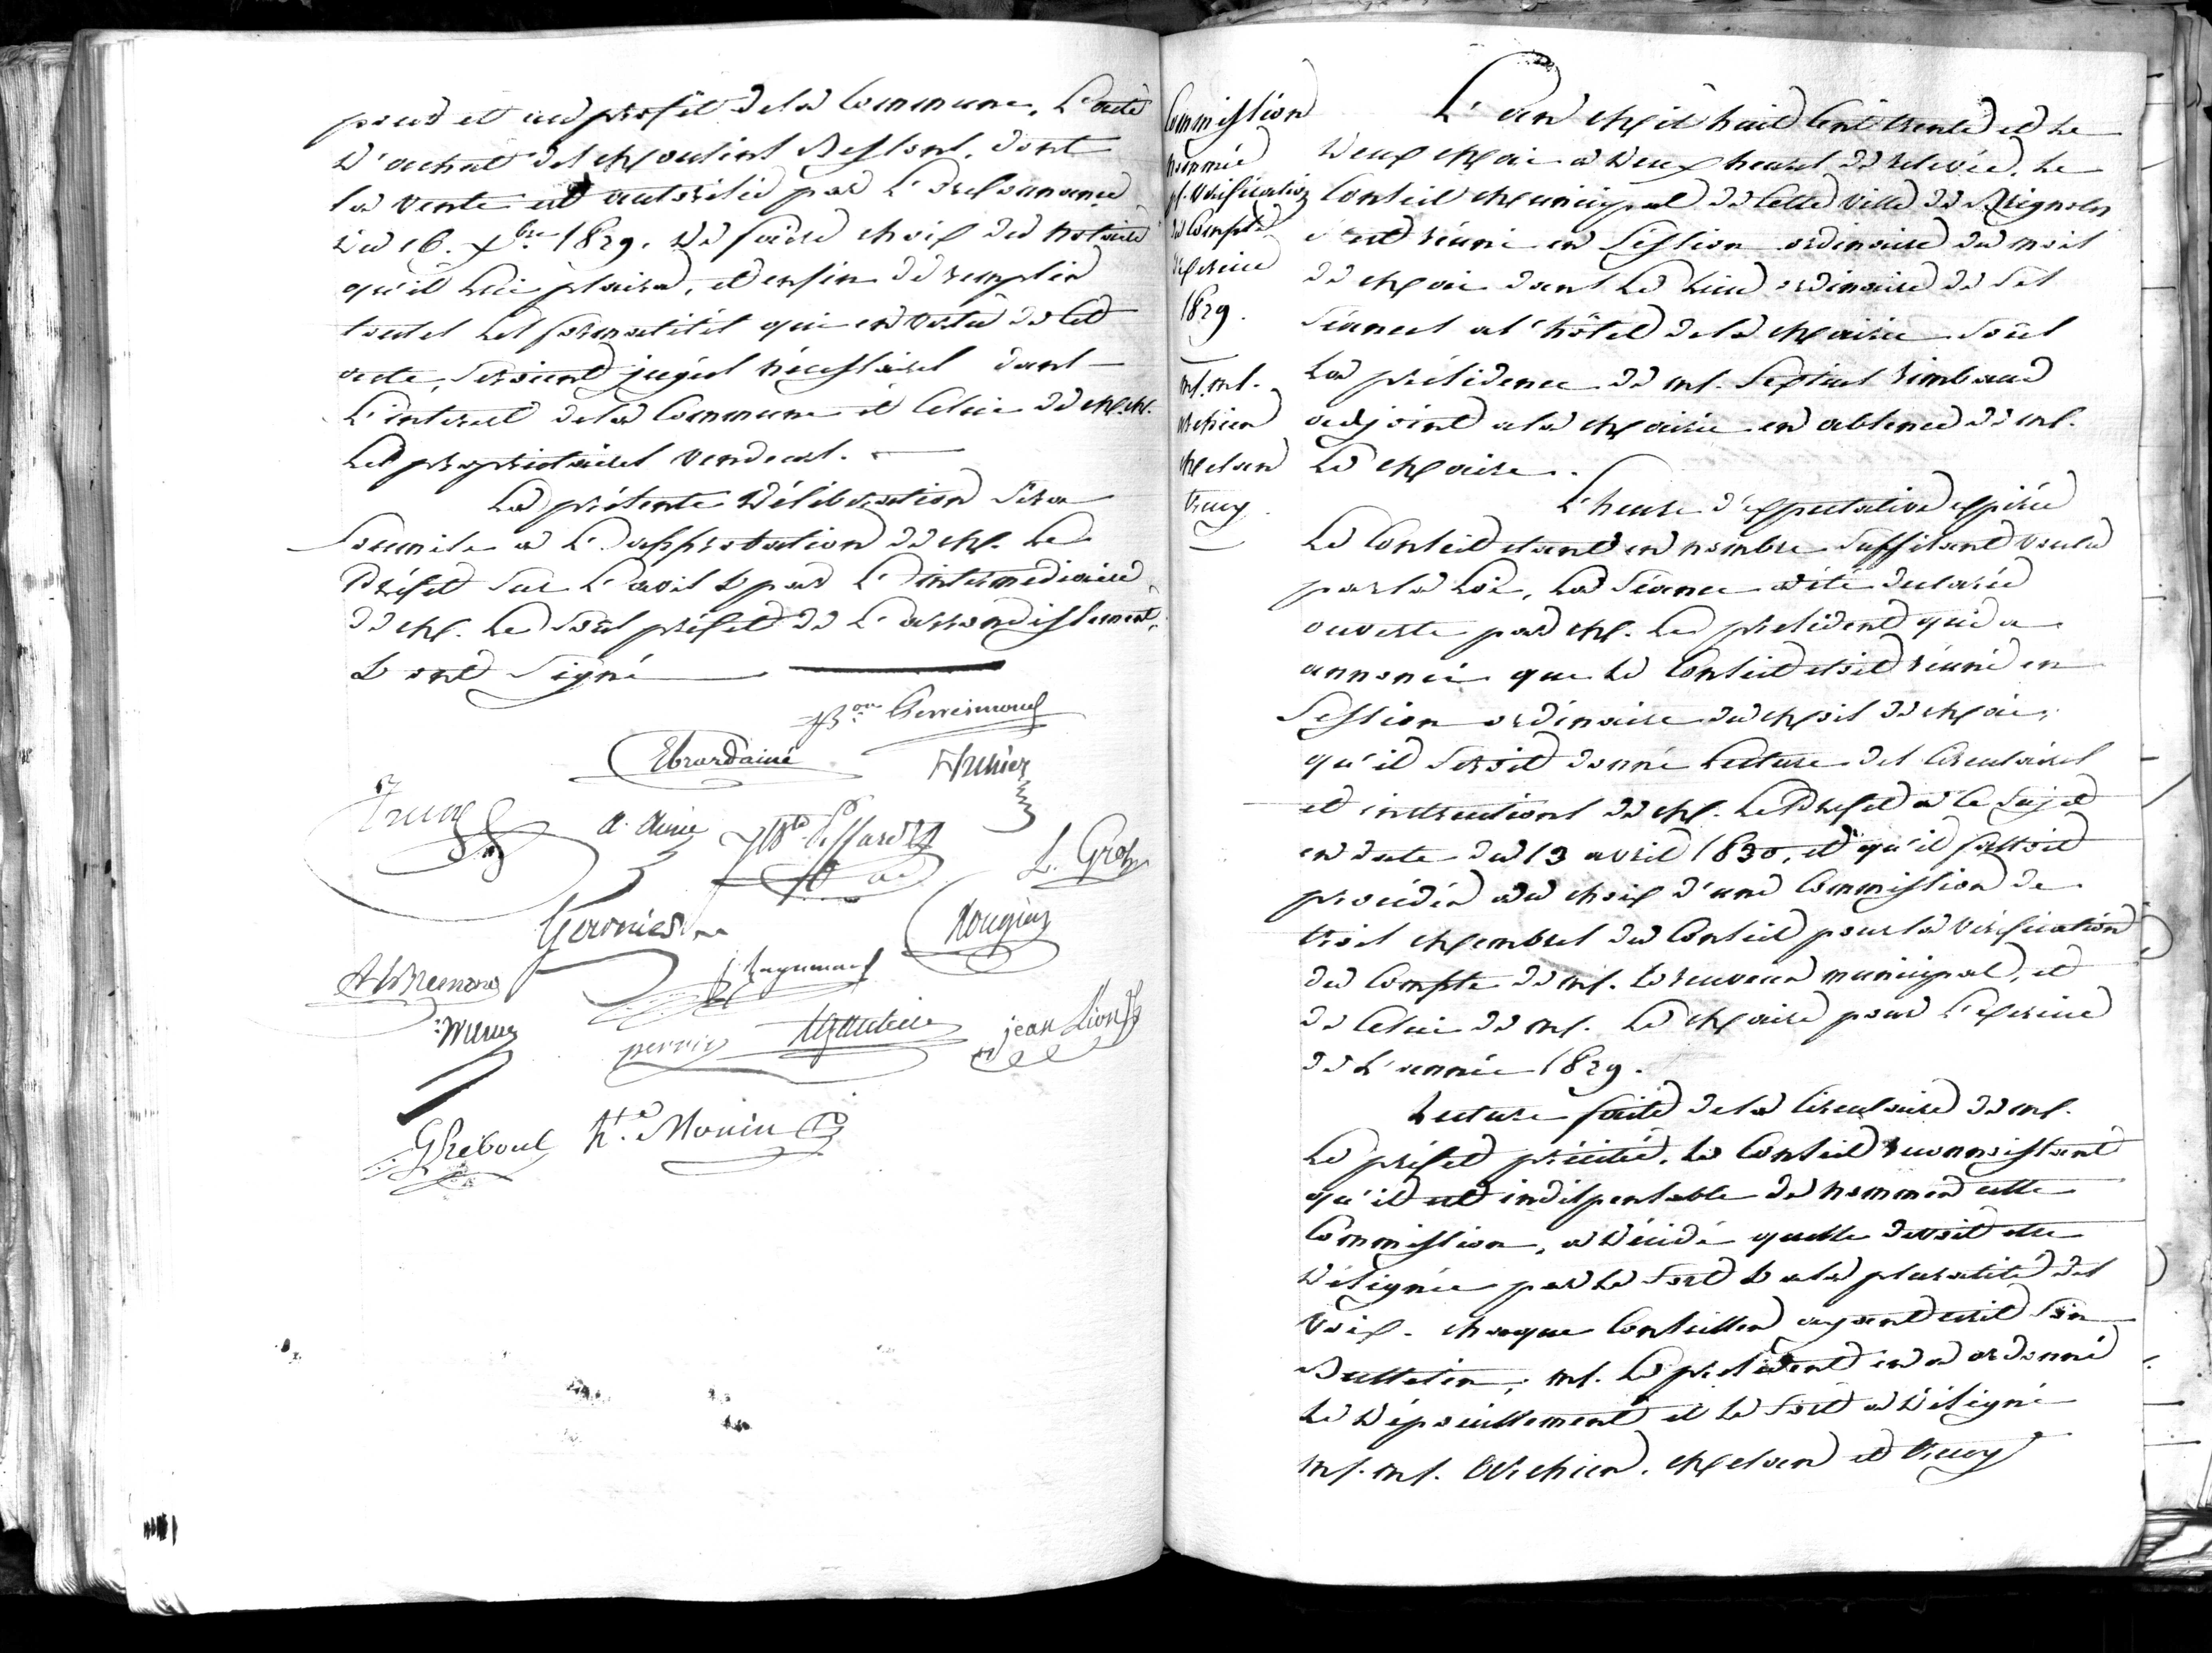 pour et au profit de la Commune, L'acte
D'achat des Moulins Bessons, dont
la vente est autorisée par L'ordonnance
du 16. Xbre 1829. De faire choix du Notaire
qu'il lui plaira, et enfin de remplir
toutes les formalités qui en vertu de cet
acte, seroient jugées nécessaires dans
L'interet de la Commune et Celui de M.M.
Les propriétaires vendeurs.
La présente Délibération sera
Soumise a L'approbation de M. Le
Préfet sur L'avis & par L'intermediaire
de M. Le Sous préfet de L'arrondissement,
& ont Signé
Perreimond
Ebrard ainé
Truc
a. aime
L. Gros
Rougier
perrin
Gautier
jean Lion
G Reboul
hte Monin
Commission
nommée
pr. Vérification
du Compte
exercice
1829.
M.M.
Meban
Trucy
L'an Mil huit Cent trente et le
deux Mai a deux heures de relevée, Le
Conseil Municipal de Cette ville de Brignoles
s'est réuni en Session ordinaire du mois
de Mai dans Le Lieu ordinaire de Ses
Séances a l'hôtel de la Mairie Sous
La présidence de M. Septime Rimbaud
adjoint a la Mairie en absence de M.
Le Maire.
L'heure d'expectative expirée
Le Conseil étant en nombre Suffisant voulu
par la Loi, La Séance a été déclarée
ouverte par M. Le président qui a
annoncé que le Conseil étoit réuni en
Session ordinaire du Mois de Mai,
qu'il Seroit donné Lecture des Circulaires
et instructions de M. Le Préfet a Ce Sujet
en date du 13 avril 1830, et qu'il falloit
procéder au choix d'une Commission de
trois Membres du Conseil pour la Vérification
du Compte de M. Le receveur municipal, et
de Celui de M. Le Maire pour L'exercice
de L'année 1829.
Lecture faite de la Circulaire de M.
Le préfet précitée, Le Conseil reconnoissant
qu'il est indispensable de nommer cette
Commission, a décidé quelle devoit etre
Désignée par Le Sort & a la pluralité des
Voix. chaque Conseiller ayant ecrit Son
Bulletin, M. Le président en a ordonné
Le Dépouillement et le Sort a Désigné
M. M. Meban et Trucy